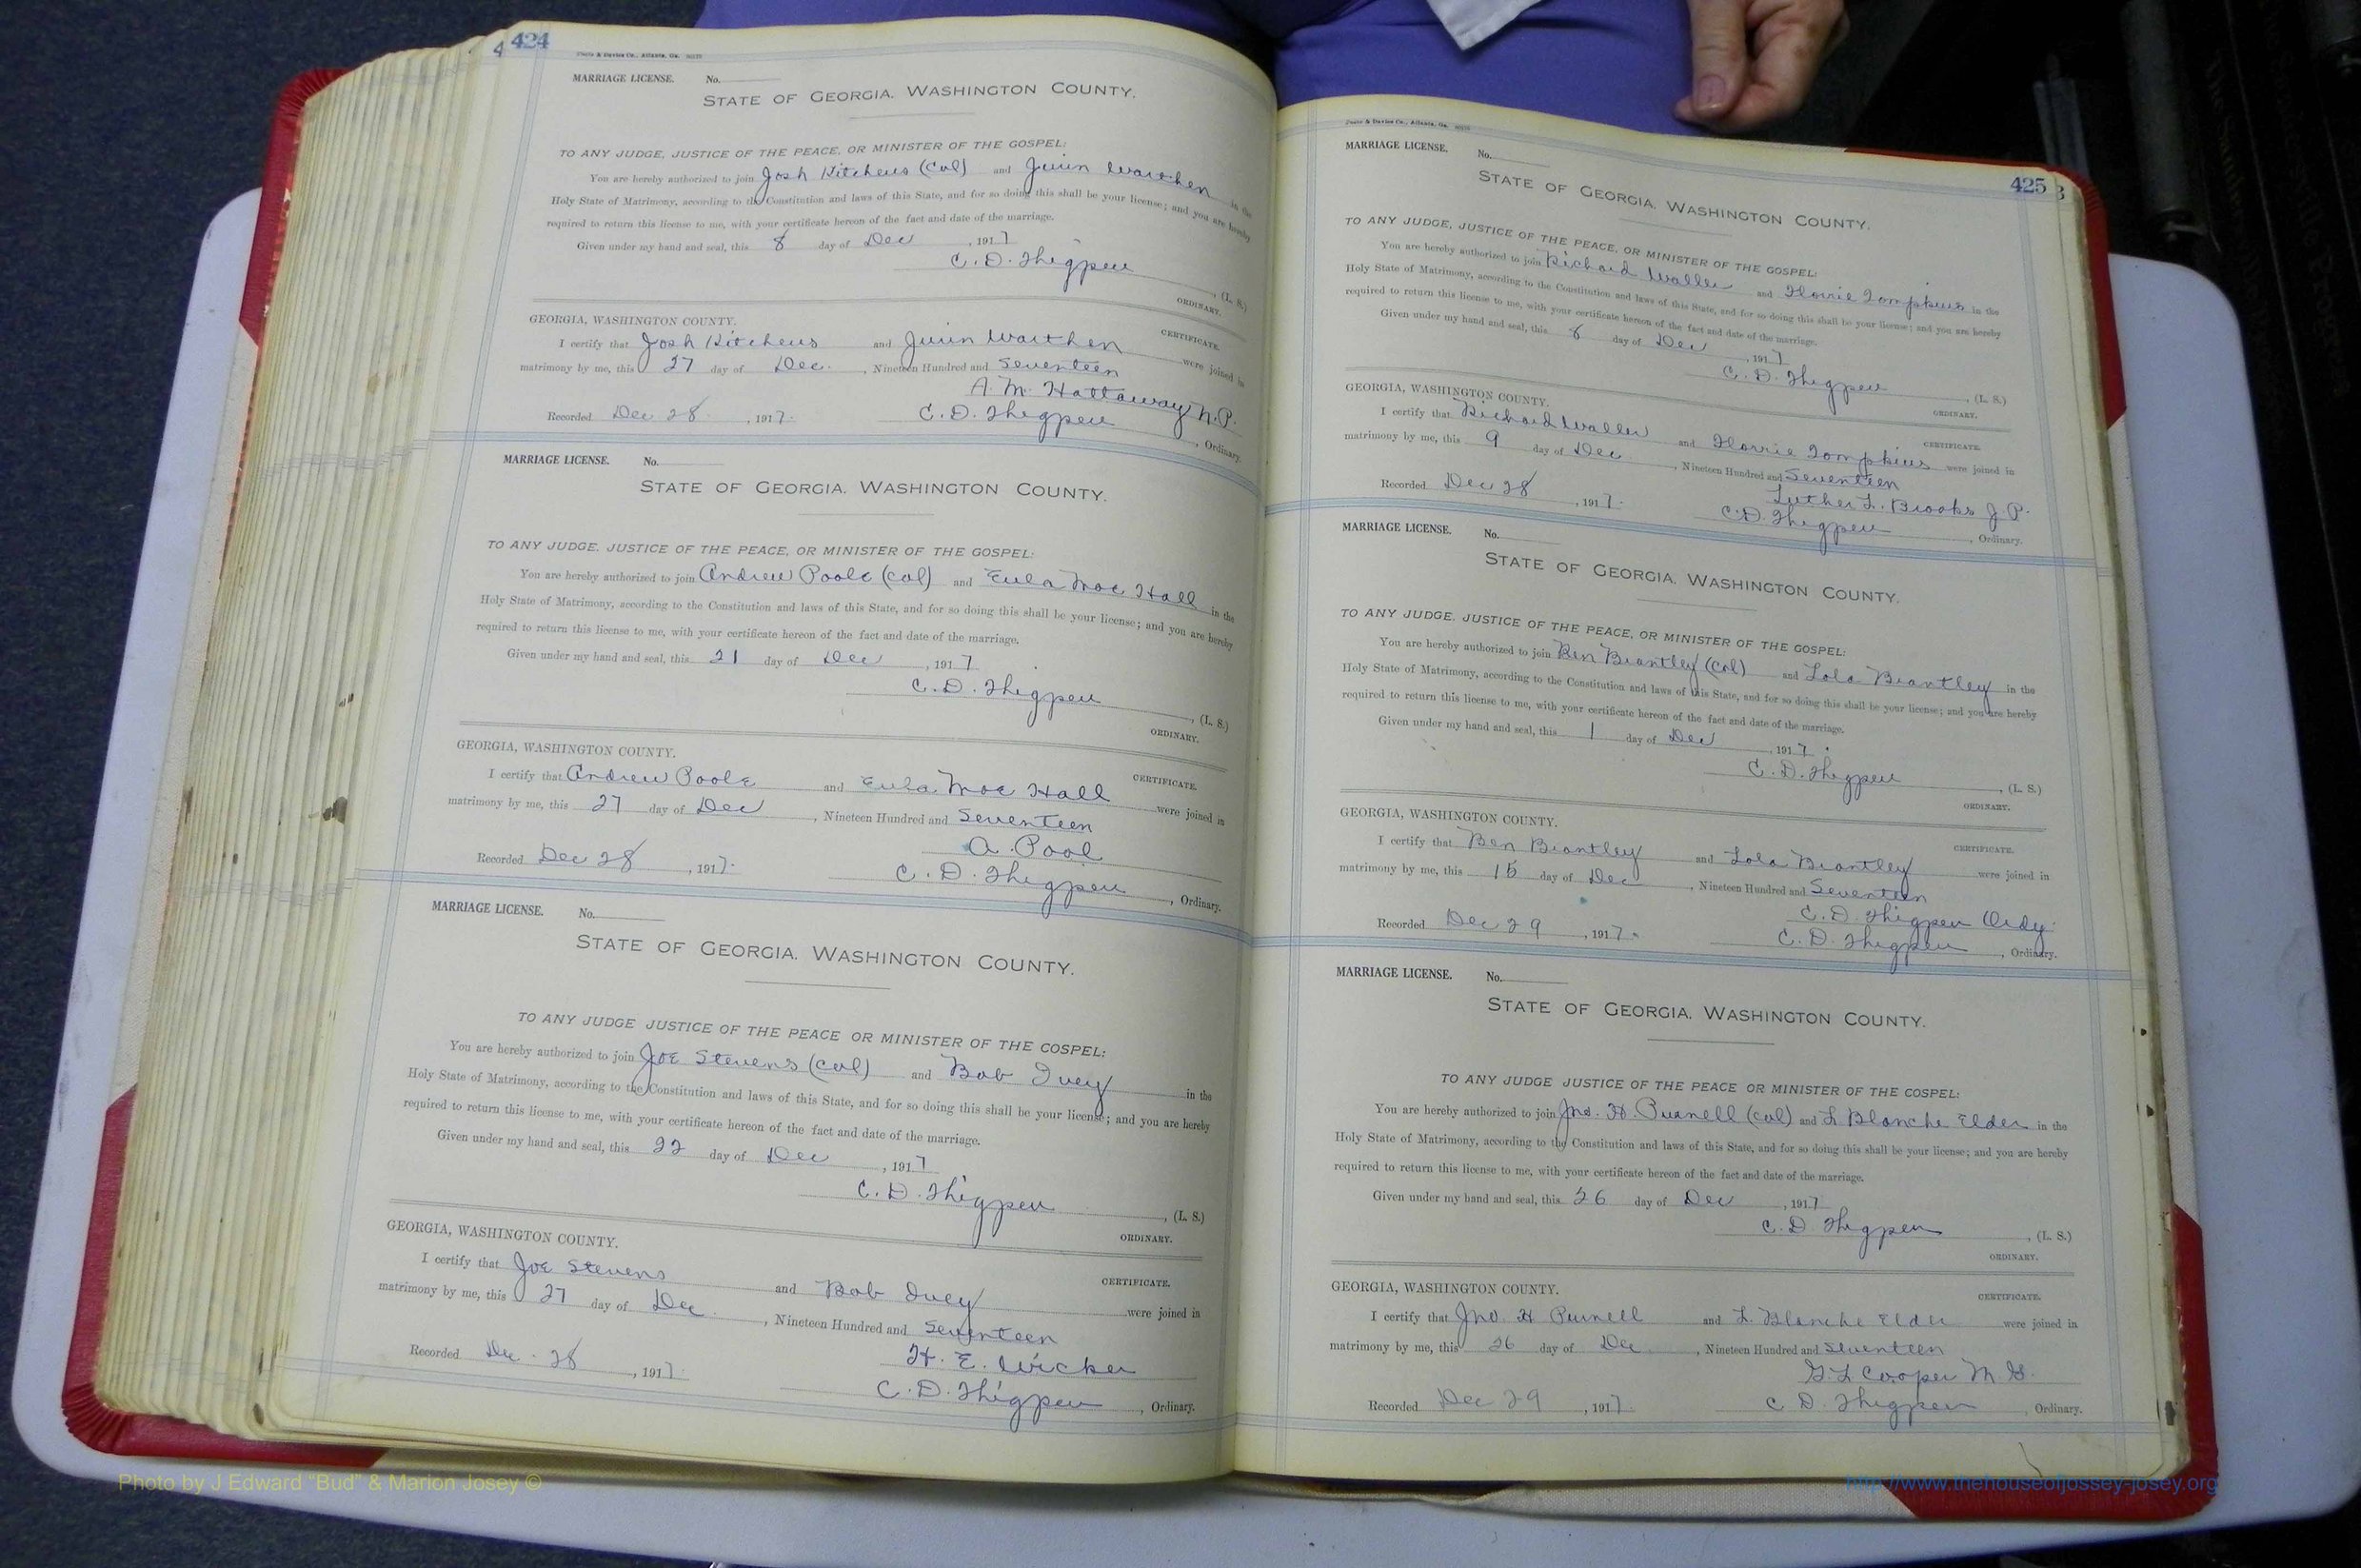 424
Foote & Davies Co., Atlanta, Ga.
MARRIAGE LICENSE. No.
STATE OF GEORGIA, WASHINGTON COUNTY.
TO ANY JUDGE, JUSTICE OF THE PEACE, OR MINISTER OF THE GOSPEL:
You are hereby authorized to join Josh Kitchens (Col) and Juin Warthen in the
Holy State of Matrimony, according to the Constitution and laws of this State, and for so doing this shall be your license; and you are hereby
required to return this license to me, with your certificate hereon of the fact and date of the marriage.
Given under my hand and seal, this 8 day of Dec, 1917
C. D. Thigpen, (L. S.)
ORDINARY.
GEORGIA, WASHINGTON COUNTY.
CERTIFICATE.
I certify that Josh Kitchens and Juin Warthen were joined in
matrimony by me, this 27 day of Dec., Nineteen Hundred and Seventeen
A. M. Hattaway N.P.
Recorded Dec 28, 1917. C. D. Thigpen, Ordinary.
MARRIAGE LICENSE. No.
STATE OF GEORGIA, WASHINGTON COUNTY.
TO ANY JUDGE, JUSTICE OF THE PEACE, OR MINISTER OF THE GOSPEL:
You are hereby authorized to join Andrew Poole (col) and Eula Mae Hall in the
Holy State of Matrimony, according to the Constitution and laws of this State, and for so doing this shall be your license; and you are hereby
required to return this license to me, with your certificate hereon of the fact and date of the marriage.
Given under my hand and seal, this 21 day of Dec, 1917
C. D. Thigpen, (L. S.)
ORDINARY.
GEORGIA, WASHINGTON COUNTY.
CERTIFICATE.
I certify that Andrew Poole and Eula Mae Hall were joined in
matrimony by me, this 27 day of Dec, Nineteen Hundred and Seventeen
A. Pool
Recorded Dec 28, 1917. C. D. Thigpen, Ordinary.
MARRIAGE LICENSE. No.
STATE OF GEORGIA, WASHINGTON COUNTY.
TO ANY JUDGE JUSTICE OF THE PEACE OR MINISTER OF THE GOSPEL:
You are hereby authorized to join Joe Stevens (col) and Bob Ivey in the
Holy State of Matrimony, according to the Constitution and laws of this State, and for so doing this shall be your license; and you are hereby
required to return this license to me, with your certificate hereon of the fact and date of the marriage.
Given under my hand and seal, this 22 day of Dec, 1917
C. D. Thigpen, (L. S.)
ORDINARY.
GEORGIA, WASHINGTON COUNTY.
CERTIFICATE.
I certify that Joe Stevens and Bob Ivey were joined in
matrimony by me, this 27 day of Dec., Nineteen Hundred and Seventeen
H. E. Wicker
Recorded Dec. 28, 1917. C. D. Thigpen, Ordinary.
425
Foote & Davies Co., Atlanta, Ga.
MARRIAGE LICENSE. No.
STATE OF GEORGIA, WASHINGTON COUNTY.
TO ANY JUDGE, JUSTICE OF THE PEACE, OR MINISTER OF THE GOSPEL:
You are hereby authorized to join Richard Waller and Florrie Tompkins in the
Holy State of Matrimony, according to the Constitution and laws of this State, and for so doing this shall be your license; and you are hereby
required to return this license to me, with your certificate hereon of the fact and date of the marriage.
Given under my hand and seal, this 8 day of Dec, 1917
C. D. Thigpen, (L. S.)
ORDINARY.
GEORGIA, WASHINGTON COUNTY.
CERTIFICATE.
I certify that Richard Waller and Florrie Tompkins were joined in
matrimony by me, this 9 day of Dec, Nineteen Hundred and Seventeen
Luther L. Brooks J.P.
Recorded Dec 28, 1917. C. D. Thigpen, Ordinary.
MARRIAGE LICENSE. No.
STATE OF GEORGIA, WASHINGTON COUNTY.
TO ANY JUDGE, JUSTICE OF THE PEACE, OR MINISTER OF THE GOSPEL:
You are hereby authorized to join Ben Brantley (Col) and Lola Brantley in the
Holy State of Matrimony, according to the Constitution and laws of this State, and for so doing this shall be your license; and you are hereby
required to return this license to me, with your certificate hereon of the fact and date of the marriage.
Given under my hand and seal, this 1 day of Dec, 1917.
C. D. Thigpen, (L. S.)
ORDINARY.
GEORGIA, WASHINGTON COUNTY.
CERTIFICATE.
I certify that Ben Brantley and Lola Brantley were joined in
matrimony by me, this 15 day of Dec, Nineteen Hundred and Seventeen
C. D. Thigpen Ordy.
Recorded Dec 29, 1917. C. D. Thigpen, Ordinary.
MARRIAGE LICENSE. No.
STATE OF GEORGIA, WASHINGTON COUNTY.
TO ANY JUDGE JUSTICE OF THE PEACE OR MINISTER OF THE GOSPEL:
You are hereby authorized to join Jno. H. Purnell (col) and L Blanche Elder in the
Holy State of Matrimony, according to the Constitution and laws of this State, and for so doing this shall be your license; and you are hereby
required to return this license to me, with your certificate hereon of the fact and date of the marriage.
Given under my hand and seal, this 26 day of Dec, 1917
C. D. Thigpen, (L. S.)
ORDINARY.
GEORGIA, WASHINGTON COUNTY.
CERTIFICATE.
I certify that Jno. H Purnell and L. Blanche Elder were joined in
matrimony by me, this 26 day of Dec, Nineteen Hundred and Seventeen
G. L Cooper M. G.
Recorded Dec 29, 1917. C D. Thigpen Ordinary.
Photo by J Edward "Bud" & Marion Josey ©
http://www.thehouseofjossey-josey.org